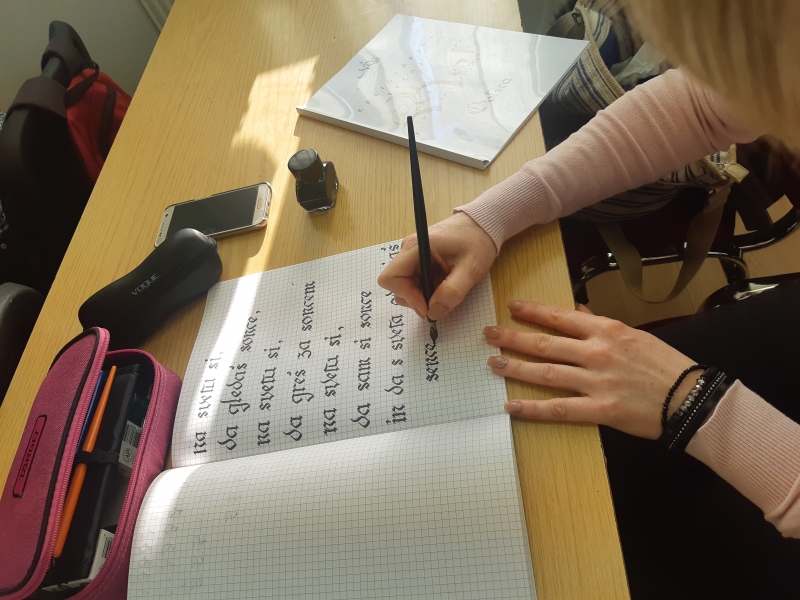 na svetu si,
da gledaš sonce,
na svetu si,
da greš za soncem
na svetu si,
da sam si sonce
in da s sveta
sence
VOGUE
TARGET